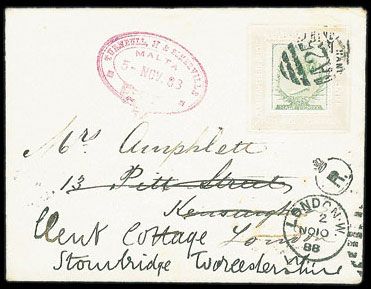 TURNBULL, Jr & SOMERVILLE
MALTA
5-NOV.88
Mrs Amphlett
13 Pitt Street
Kensington
London
Clent Cottage
Stourbridge Worcestershire
R.
LONDON.W.
2
NO10
88